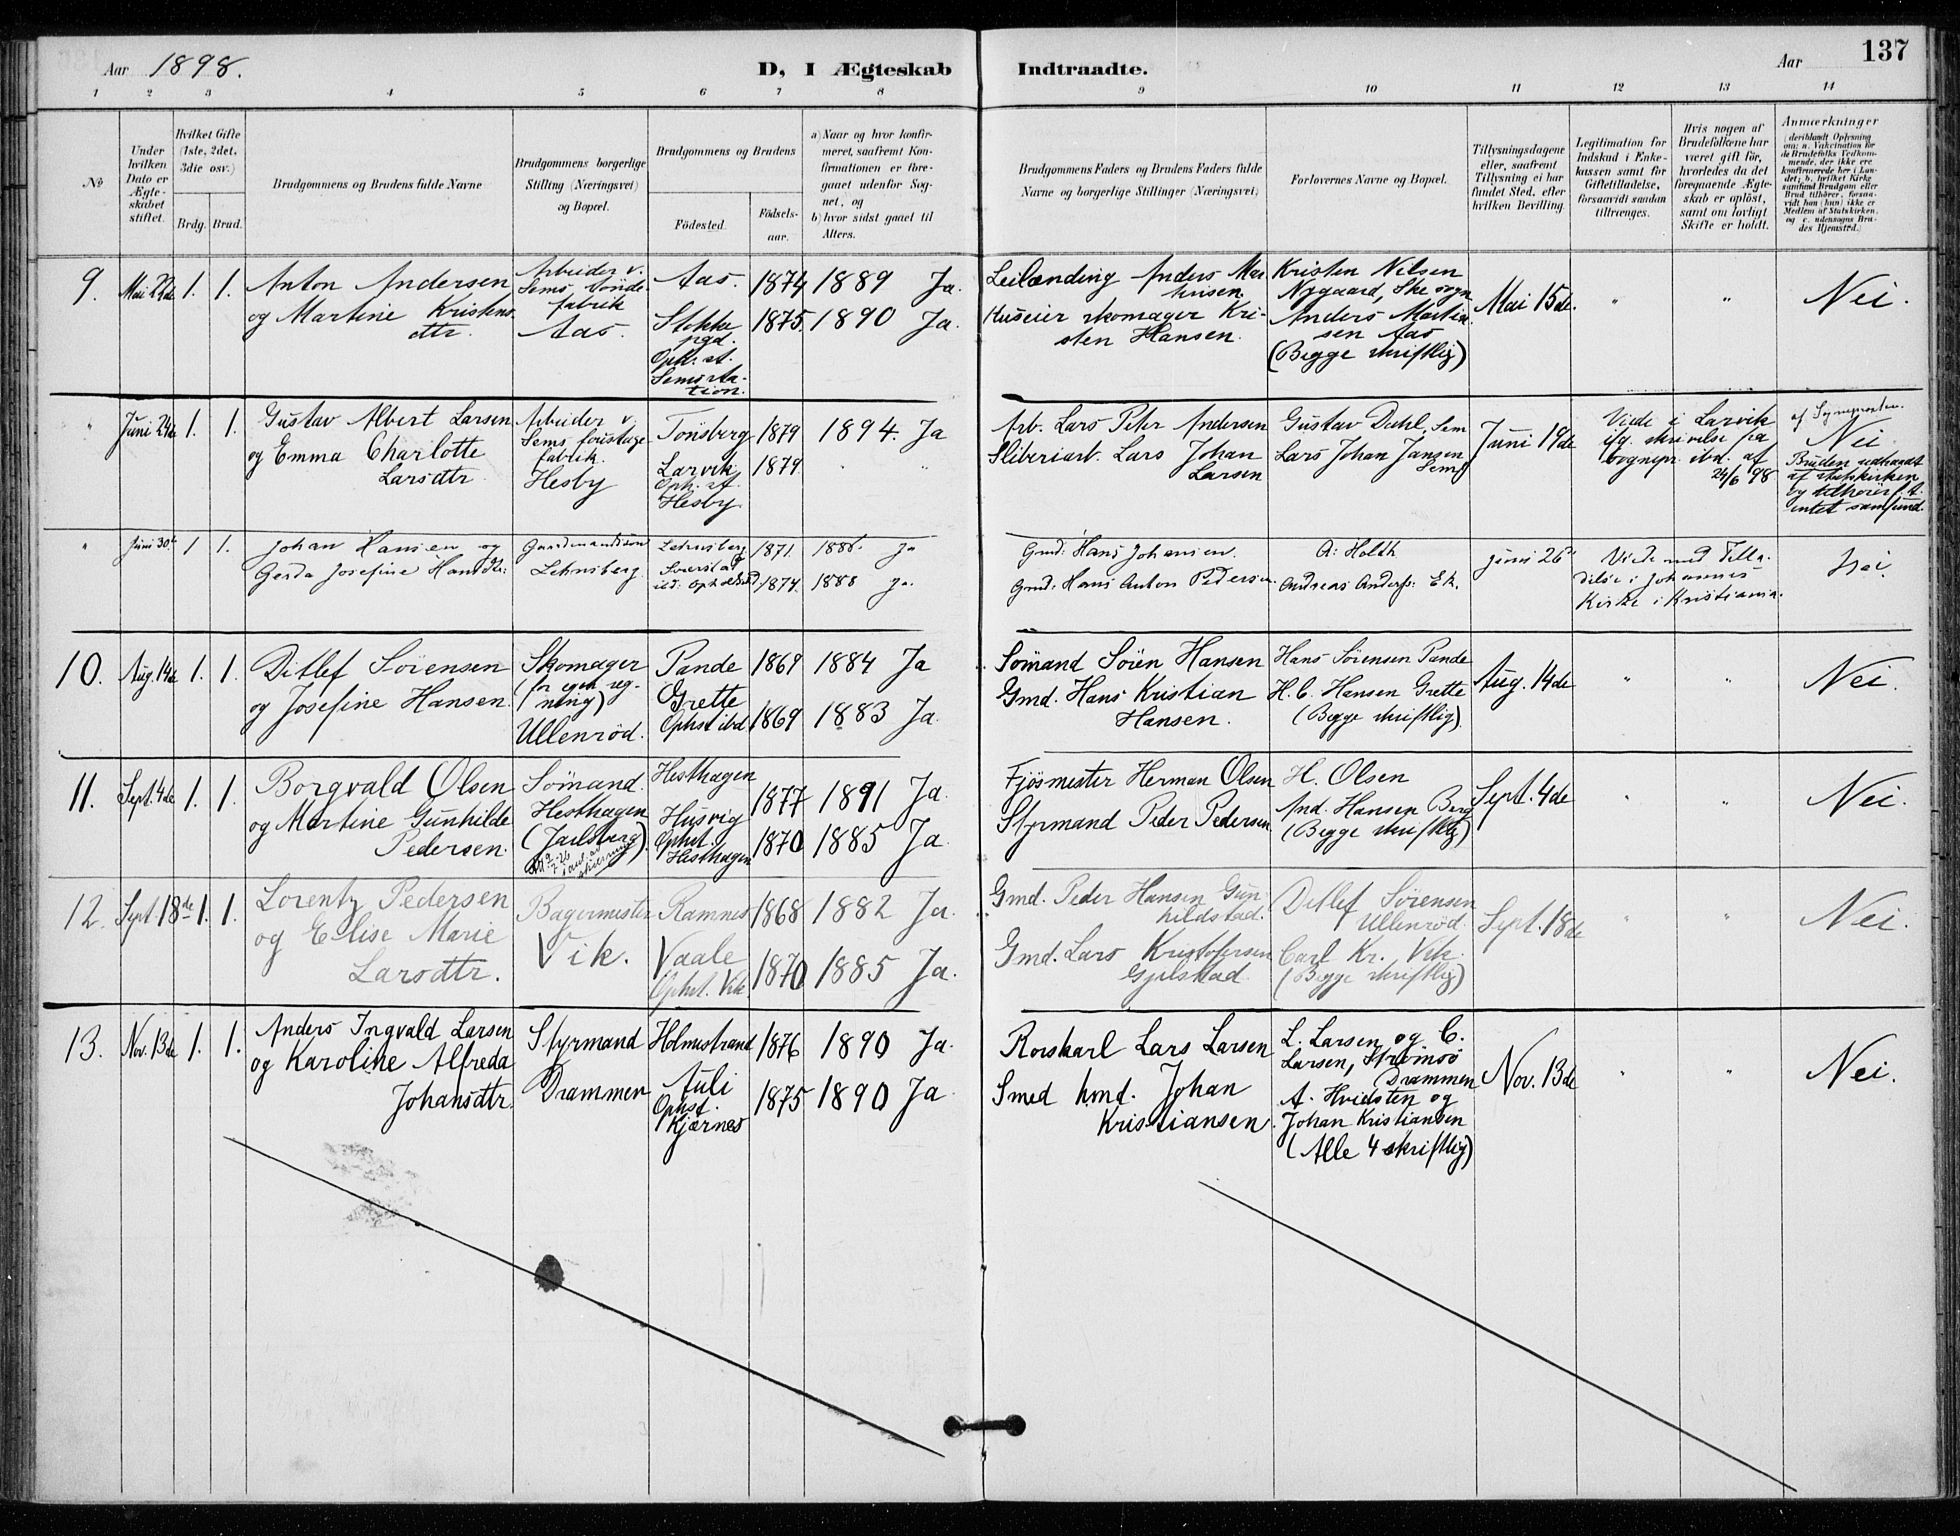 Aar 1898.
D, I Ægteskab
Indtraadte.
Aar
137
1 2 3 4 5 6 7 8 9 10 11 12 13 14
No
Under hvilken Dato er Ægteskabet stiftet.
Hvilket Gifte (1ste, 2det, 3die osv.)
Brdg. Brud.
Brudgommens og Brudens fulde Navne
Brudgommens borgerlige Stilling (Næringsvei) og Bopæl.
Brudgommens og Brudens
Födested. Födselsaar.
a) Naar og hvor konfirmeret, saafremt Konfirmationen er foregaaet udenfor Sognet, og
b) hvor sidst gaaet til Alters.
Brudgommens Faders og Brudens Faders fulde Navne og borgerlige Stillinger (Næringsvei)
Forlovernes Navne og Bopæl.
Tillysningsdagene eller, saafremt Tillysning ei har fundet Sted, efter hvilken Bevilling.
Legitimation for Indskud i Enkekassen samt for Giftetilladelse, forsaavidt saadan tiltrænges.
Hvis nogen af Brudefolkene har været gift för, hvorledes da det foregaaende Ægteskab er oplöst, samt om lovligt Skifte er holdt.
Anmærkninger
(deriblandt Oplysning om: a. Vakcination for de Brudefolks Vedkommende, der ikke ere konfirmerede her i Landet; b. hvilket Kirkesamfund Brudgom eller Brud tilhörer, forsaavidt han (hun) ikke er Medlem af Statskirken, og c. udensogns Brudes Hjemsted.)
9. Mai 29de 1. 1. Anton Andersen
og Martine Kristensdtr.
Arbeider v. Sems fabrik
Aas.
Aas. 1874 1889 Ja.
Stokke pgd. Oph. st. Semsstation. 1875. 1890 Ja.
Leilænding Anders Martinsen
Huseier skomager Kristen Hansen.
Kristen Nilsen Nygaard, Ske sogn
Anders Martinsen Aas
(Begge skriftlig)
Mai 15de " " Nei.
" Juni 24de 1. 1. Gustav Albert Larsen
og Emma Charlotte Larsdtr.
Arbeider v. Sems foustage fabrik.
Hesby
Tönsberg 1879 1894. Ja
Larvik Oph. st. Hesby 1879. " "
Arb. Lars Peter Andersen
Sliberiarb. Lars Johan Larsen
Gustav Dahl, Sem
Lars Johan Jansen Sem
Juni 19de
Viede i Larvik ifg. skrivelse fra sognepr. ibd. af 24/6 98
af Sognepresten.
Nei.
Bruden udtraadt af statskirken og tilhörer intet samfund.
" Juni 30te 1 1. Johan Hansen og
Gerda Josefine Hansdtr:
Gaardmandssön
Lehnsberg
Lehnsberg 1871. 1886. Ja
1874. 1888 Ja.
Gmd: Hans Johansen.
Gmd: Hans Anton Pedersen.
A: Holth
Andreas Anders: Ek.
Juni 26de
Viede med Tilladelse i Johannes Kirke i Kristiania.
Nei.
10. Aug. 14de 1. 1. Ditlef Sörensen
og Josefine Hansen.
Skomager (for egen regning)
Ullenröd.
Pande 1869 1884 Ja
Grette Ophst ibd 1869 1883 Ja.
Sömand Sören Hansen
Gmd. Hans Kristian Hansen.
Hans Sörensen Pande
H. C. Hansen Grette
(Begge skriftlig)
Aug. 14de " " Nei.
11. Sept. 4de 1. 1. Borgvald Olsen
og Martine Gunhilde Pedersen.
Sömand.
Hesthagen (Jarlsberg).
Hesthagen 1877 1891 Ja.
Husvig Ophst. Hesthagen 1870 1885 Ja.
Fjösmester Herman Olsen
Styrmand Peder Pedersen
H. Olsen
And. Hansen Berg
(Begge skriftlig)
Sept. 4de " " Nei.
12. Sept. 18de 1. 1. Lorentz Pedersen
og Elise Marie Larsdtr.
Bagermester
Vik.
Ramnes 1868 1882 Ja.
Vaale Ophst. Vik. 1870 1885 Ja.
Gmd. Peder Hansen Gunhildstad.
Gmd. Lars Kristofersen Gjelstad.
Ditlef Sörensen Ullenröd.
Carl Kr. Vik.
(Begge skriftlig)
Sept. 18de " " Nei.
13. Nov. 13de 1. 1. Anders Ingvald Larsen
og Karoline Alfreda Johansdtr.
Styrmand
Drammen
Holmestrand 1876 1890 Ja.
Auli Ophst. Kjærnes 1875 1890 Ja.
Rorskarl Lars Larsen
Smed hmd. Johan Kristiansen.
L. Larsen og C. Larsen, Strömsö Drammen
A. Hvidsten og Johan Kristiansen
(Alle 4 skriftlig)
Nov. 13de " " Nei.